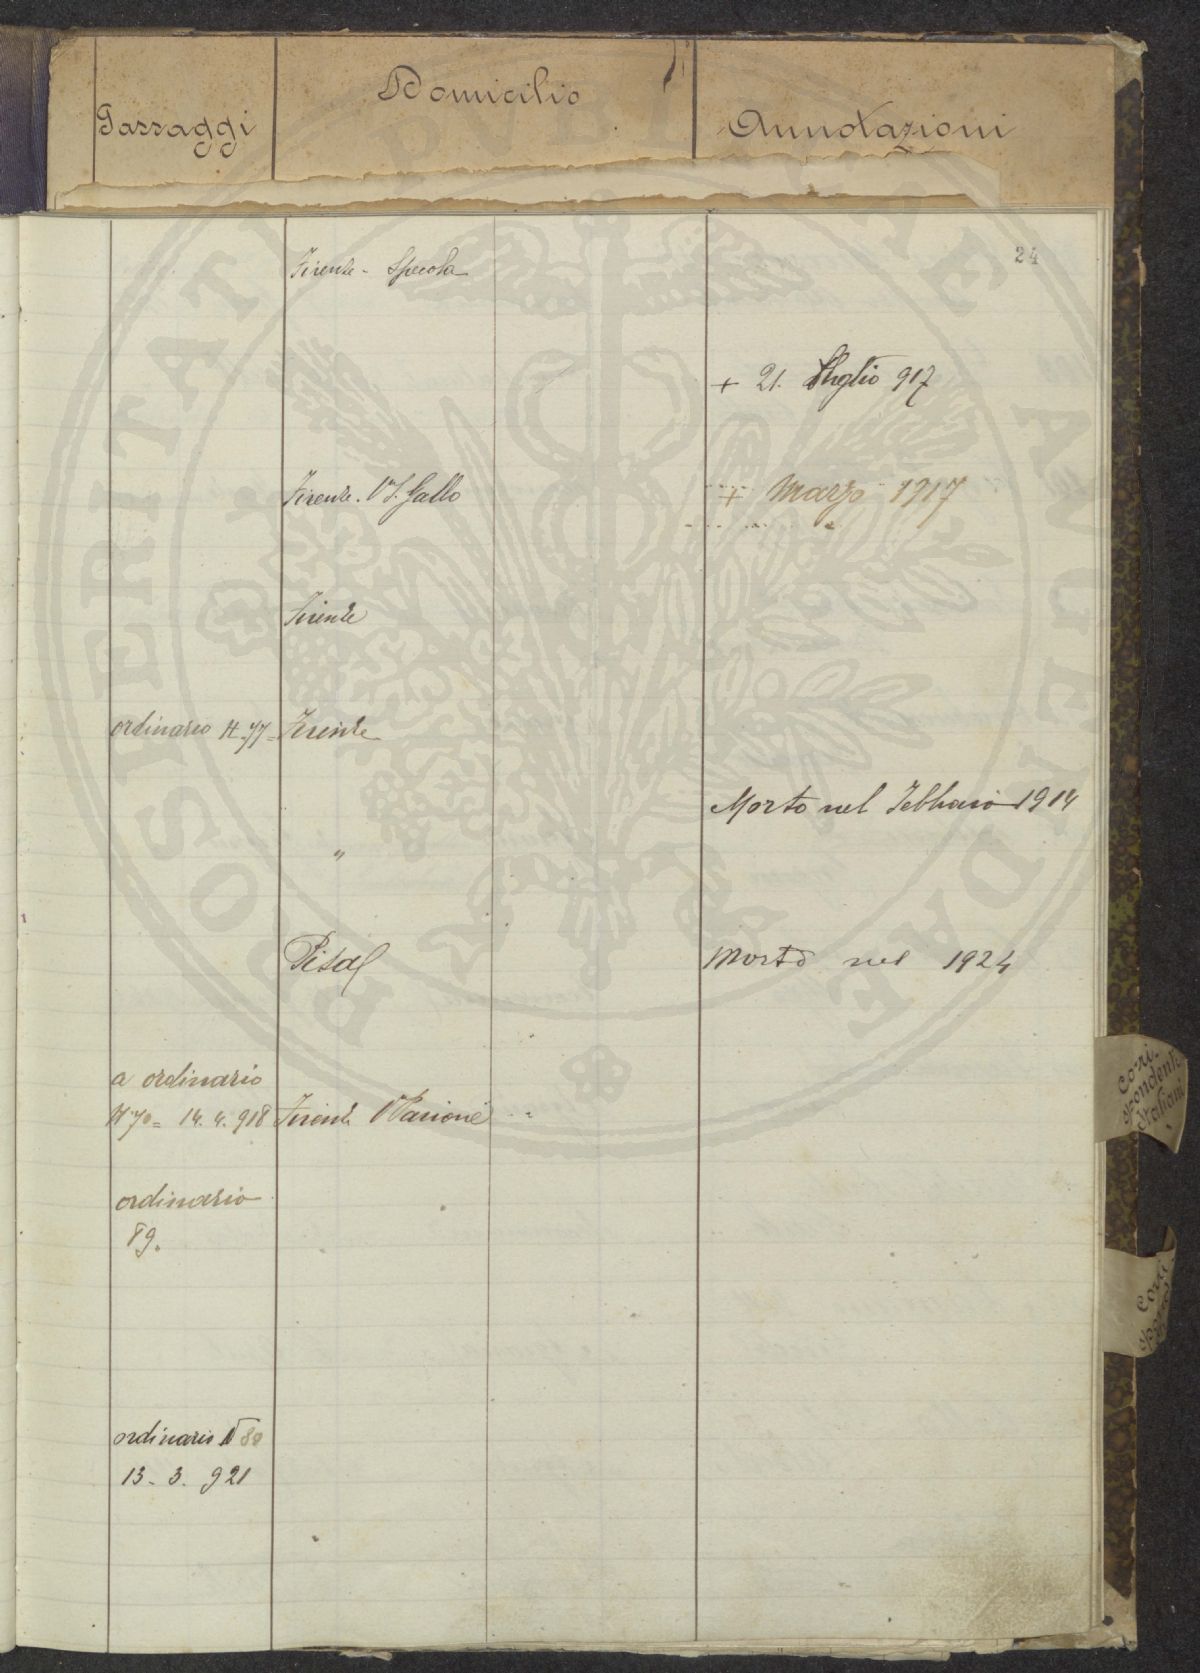 Passaggi
Domicilio
Annotazioni
24
Firenze - Specola
+ 21. Luglio 917
Firenze. V. S. Gallo
+ Marzo 1917
Firenze
ordinario N. 77 - Firenze
Morto nel Febbraio 1914
"
Pisa
Morto nel 1924
a ordinario
N 70 = 14. 4. 918 Firenze
ordinario
89.
ordinario N 80
13 - 3. 921
Corri-
spondenti
Italiani
Corri
spon
PROSPERITATI PUBLICAE AUGENDAE